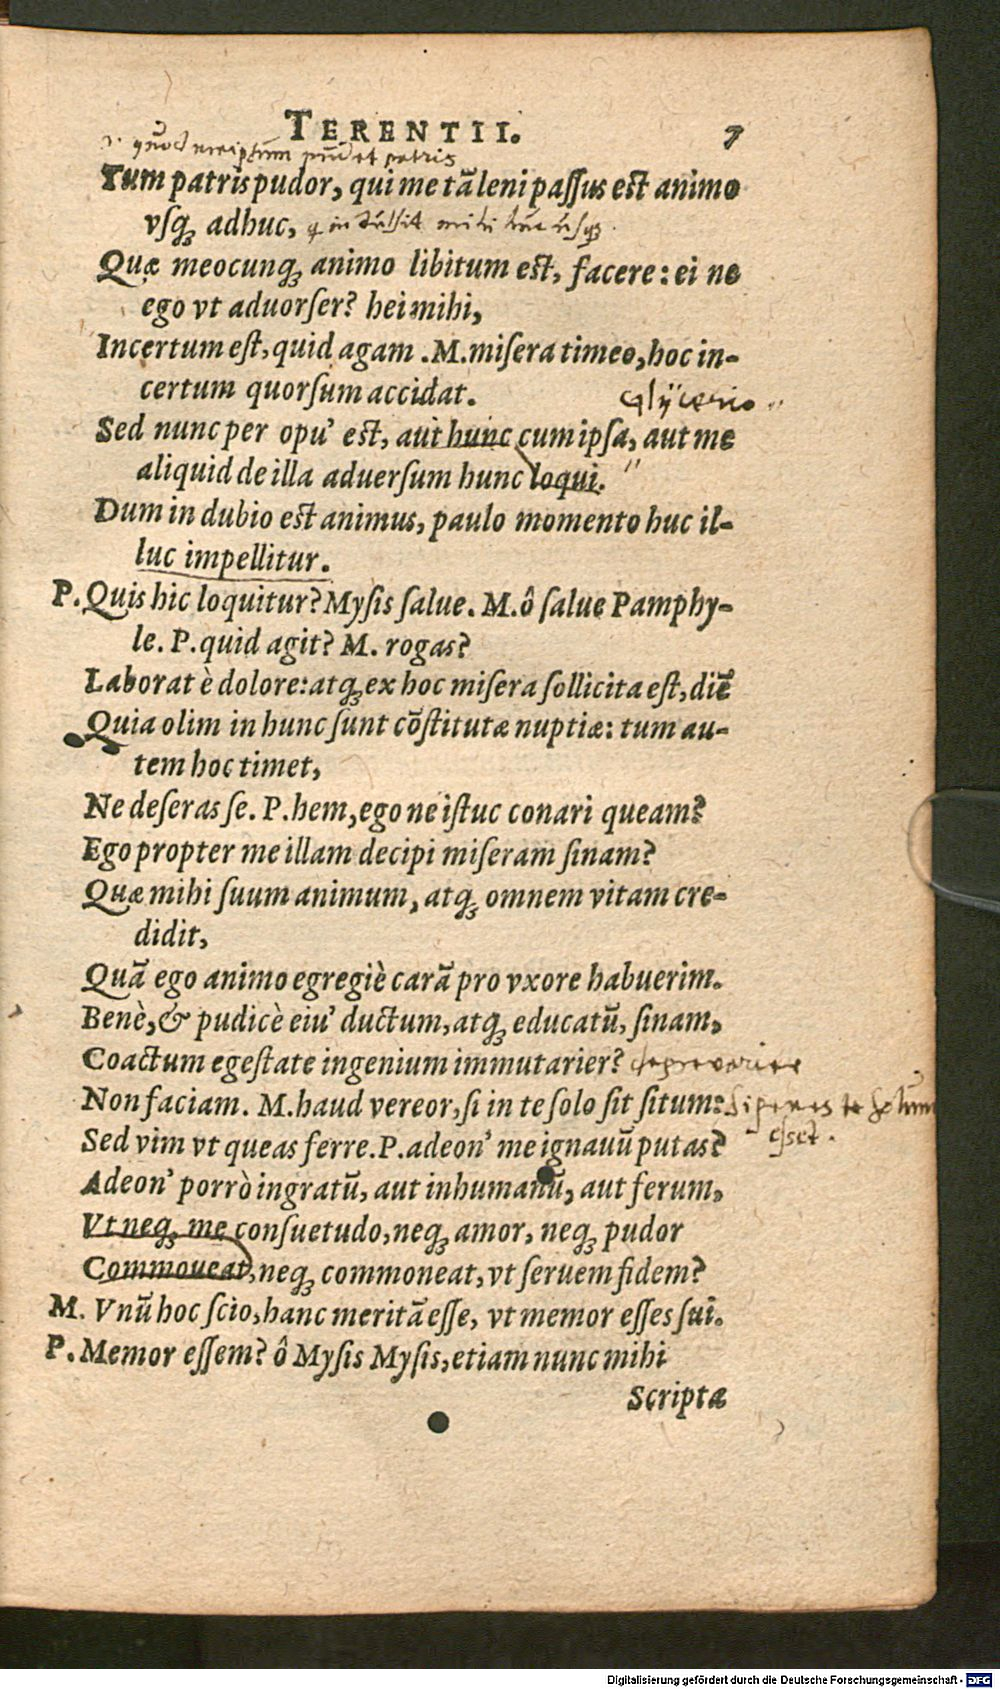 TERENTII. 7
Tum patris pudor, qui me tā leni passus est animo
vsq; adhuc,
Quæ meocunq; animo libitum est, facere: ei ne
ego vt aduorser? hei mihi,
Incertum est, quid agam .M. misera timeo, hoc in-
certum quorsum accidat.
Glÿcerio
Sed nunc per opu' est, aut hunc cum ipsa, aut me
aliquid de illa aduersum hunc loqui.
Dum in dubio est animus, paulo momento huc il-
luc impellitur.
P. Quis hic loquitur? Mysis salue. M. ô salue Pamphy-
le. P. quid agit? M. rogas?
Laborat è dolore: atq; ex hoc misera sollicita est, diē
Quia olim in hunc sunt cōstitutæ nuptiæ: tum au-
tem hoc timet,
Ne deseras se. P. hem, ego ne istuc conari queam?
Ego propter me illam decipi miseram sinam?
Quæ mihi suum animum, atq; omnem vitam cre-
didit,
Quā ego animo egregiè carā pro vxore habuerim.
Benè, & pudicè eiu' ductum, atq; educatū, sinam,
Coactum egestate ingenium immutarier?
Non faciam. M. haud vereor, si in te solo sit situm: si penes te solum
esset.
Sed vim vt queas ferre. P. adeon' me ignauū putas?
Adeon' porrò ingratū, aut inhumanū, aut ferum,
Vt neq; me consuetudo, neq; amor, neq; pudor
Commoueat, neq; commoneat, vt seruem fidem?
M. Vnū hoc scio, hanc meritā esse, vt memor esses sui.
P. Memor essem? ô Mysis Mysis, etiam nunc mihi
Scriptæ
Digitalisierung gefördert durch die Deutsche Forschungsgemeinschaft - DFG